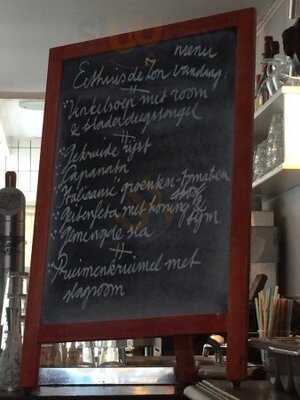 menu
Esthuis de Zon vandaag:
Venkelsoep met room
& bladerdeegstengel
Gekruide rijst
Caponata
Italiaanse groenten-tomaten
Geitenfeta met honing &
tijm
Gemengde sla
Pruimenkruimel met
slagroom